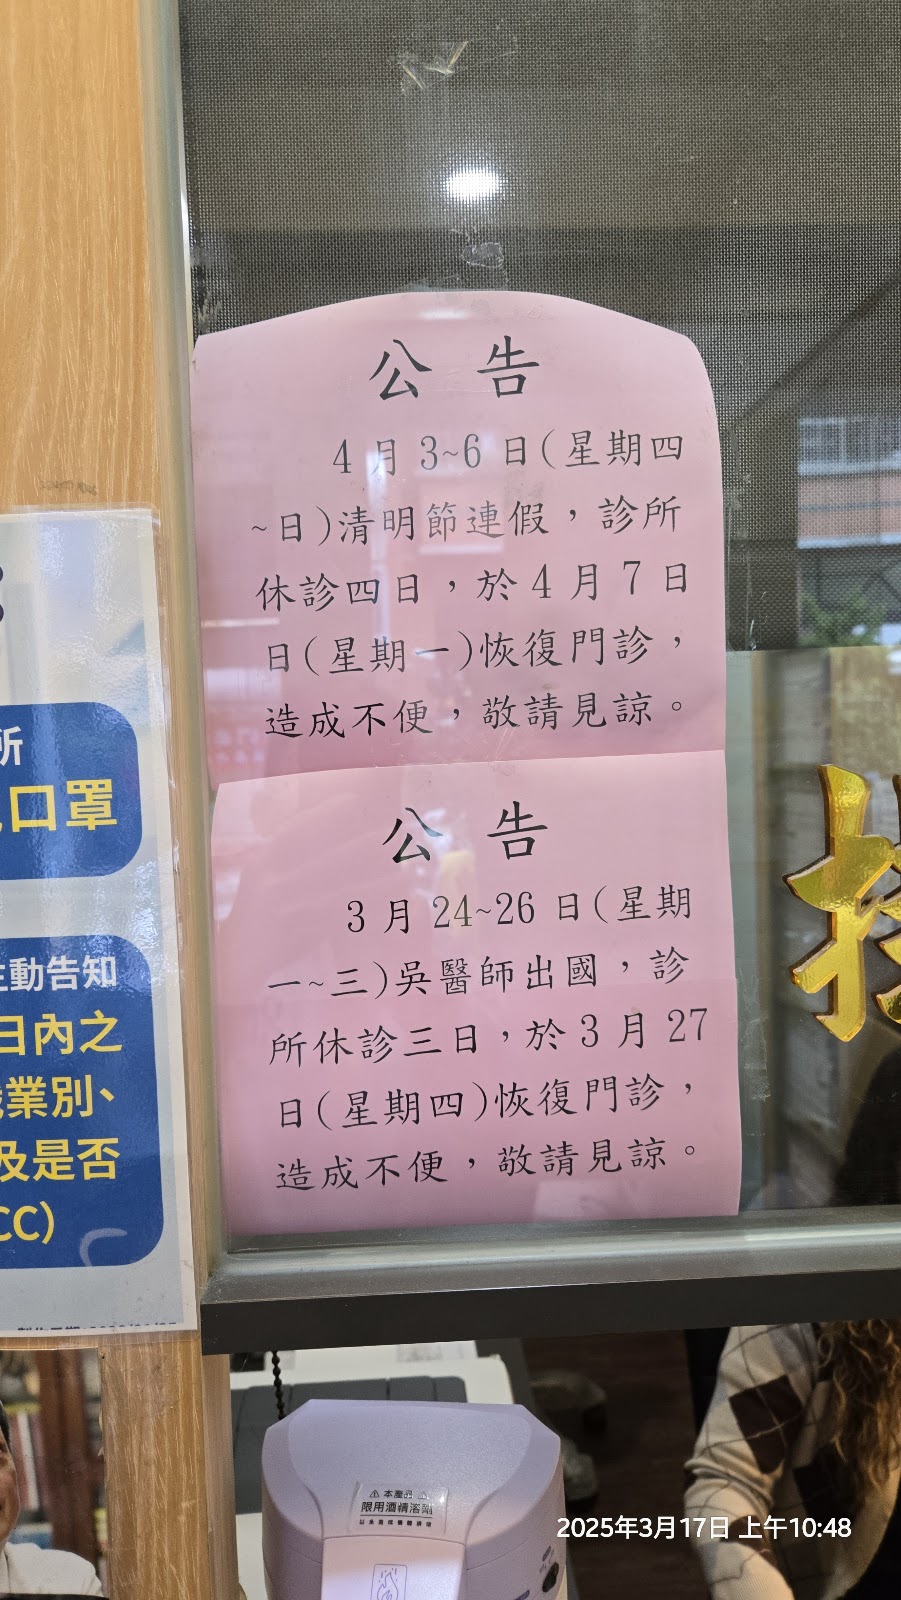 公告
4月3~6日(星期四
~日)清明節連假，診所
休診四日，於4月7日
日(星期一)恢復門診，
造成不便，敬請見諒。
公告
3月24~26日(星期
一~三)吳醫師出國，診
所休診三日，於3月27
日(星期四)恢復門診，
造成不便，敬請見諒。
所
口罩
主動告知
日內之
業別、
及是否
CC)
本產品
限用酒精溶劑
2025年3月17日 上午10:48